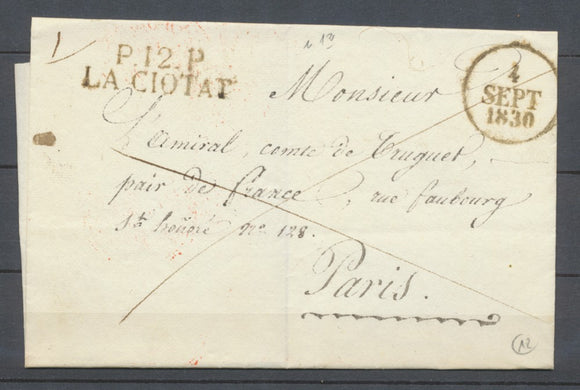 P.12.P
LA CIOTAT
4
SEPT
1830
Monsieur
L'amiral, comte de Truguet,
pair de france, rue faubourg
St. honoré no. 128.
Paris.
12